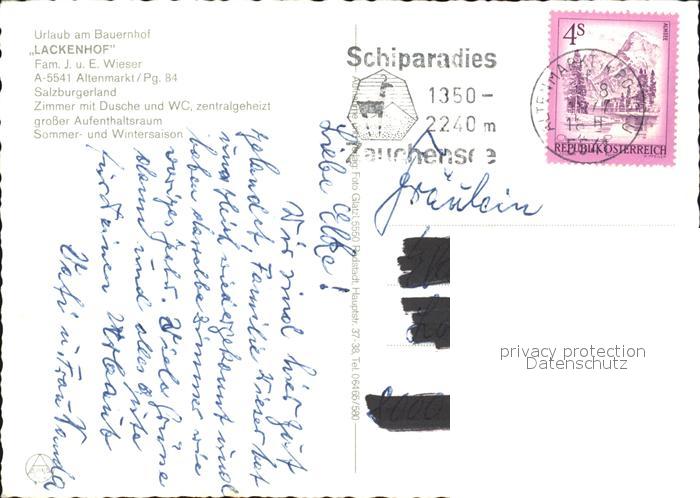 Urlaub am Bauernhof
„LACKENHOF"
Fam. J. u. E. Wieser
A-5541 Altenmarkt/Pg. 84
Salzburgerland
Zimmer mit Dusche und WC, zentralgeheizt
großer Aufenthaltsraum
Sommer- und Wintersaison
Schiparadies
1350-
2240 m
Zauchensee
4S
ALMSEE
REPUBLIK ÖSTERREICH
Foto Glatzl, 5550 Radstadt, Hauptstr. 37-38, Tel. 06465/580
Liebe Elke!
Wir sind hier gut
gelandet, Familie Wieser hat
uns gleich wiedergekannt und
haben dasselbe Zimmer wie
voriges Jahr. Viele Grüsse
dann und alles gute
für deinen Urlaub
Vati u. Frau
Fräulein
privacy protection
Datenschutz